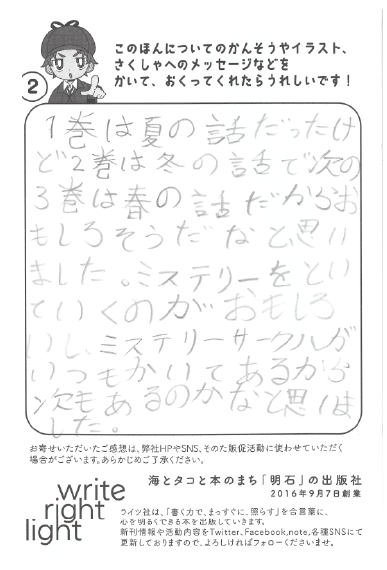 このほんについてのかんそうやイラスト、
さくしゃへのメッセージなどを
かいて、おくってくれたらうれしいです！
2
1巻は夏の話だったけ
ど2巻は冬の話で次の
3巻は春の話だからお
もしろそうだなと思い
ました。ミステリーをとい
ていくのがおもしろ
いし、ミステリーサークルが
いつもかいてあるから
次もあるのかなと思いま
した。
お寄せいただいたご感想は、弊社HPやSNS、そのた販促活動に使わせていただく
場合がございます。あらかじめご了承ください。
write
right
light
海とタコと本のまち「明石」の出版社
2016年9月7日創業
ライツ社は、「書く力で、まっすぐに、照らす」を合言葉に、
心を明るくできる本を出版していきます。
新刊情報や活動内容をTwitter、Facebook、note、各種SNSにて
更新しておりますので、よろしければフォローくださいませ。